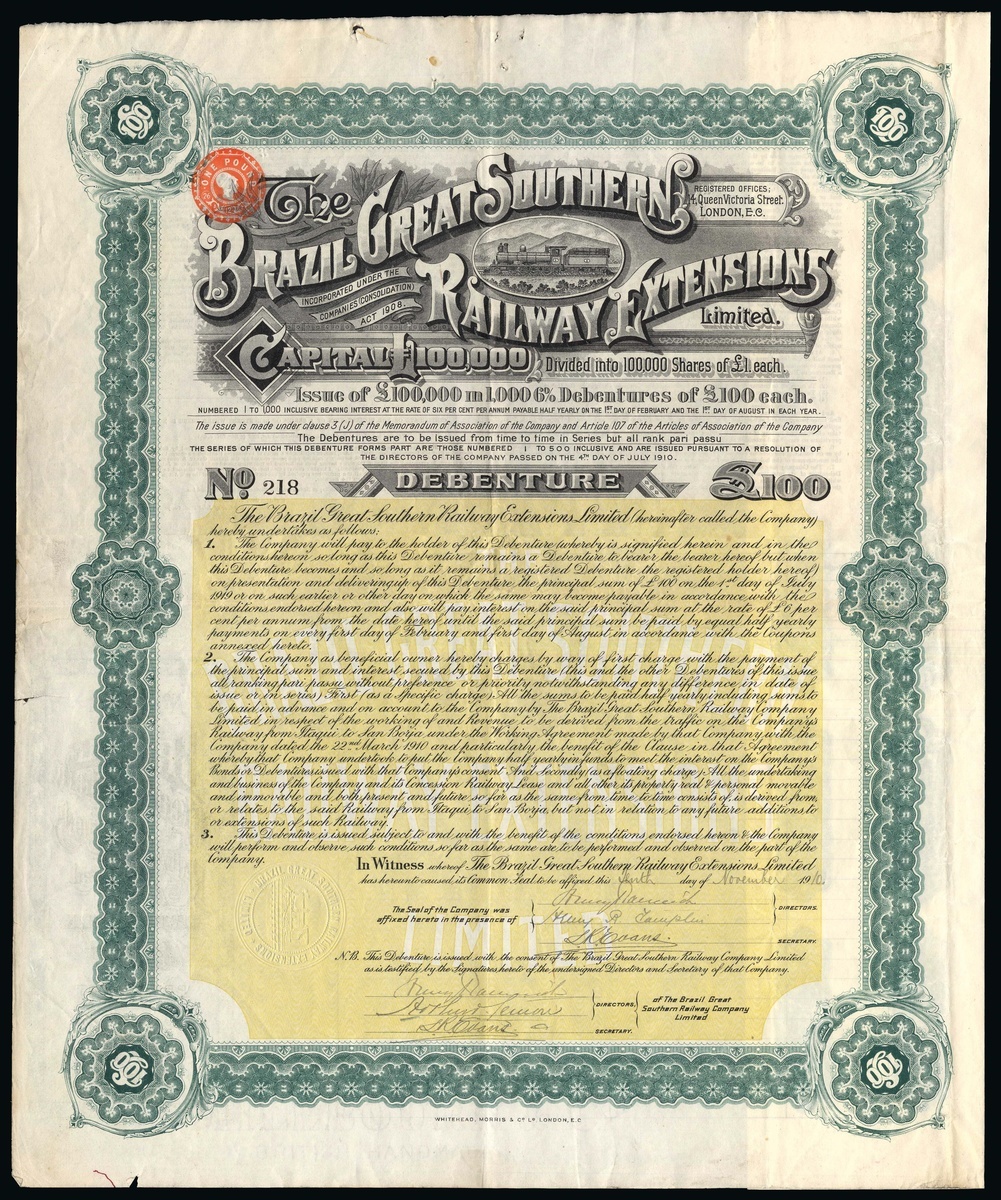 100
100
ONE POUND
The
BRAZIL GREAT SOUTHERN
RAILWAY EXTENSIONS
Limited.
REGISTERED OFFICES;
14, Queen Victoria Street.
LONDON, E.C.
INCORPORATED UNDER THE
COMPANIES (CONSOLIDATION)
ACT 1908.
CAPITAL £100,000 Divided into 100,000 Shares of £1 each.
Issue of £100,000 in 1,000 6% Debentures of £100 each.
NUMBERED 1 TO 1,000 INCLUSIVE BEARING INTEREST AT THE RATE OF SIX PER CENT PER ANNUM PAYABLE HALF YEARLY ON THE 1ST DAY OF FEBRUARY AND THE 1ST DAY OF AUGUST IN EACH YEAR.
The issue is made under clause 3 (J) of the Memorandum of Association of the Company and Article 107 of the Articles of Association of the Company
The Debentures are to be issued from time to time in Series but all rank pari passu
THE SERIES OF WHICH THIS DEBENTURE FORMS PART ARE THOSE NUMBERED 1 TO 500 INCLUSIVE AND ARE ISSUED PURSUANT TO A RESOLUTION OF
THE DIRECTORS OF THE COMPANY PASSED ON THE 4TH DAY OF JULY 1910.
No. 218 DEBENTURE £100
The Brazil Great Southern Railway Extensions Limited (hereinafter called the Company)
hereby undertakes as follows.
1. The Company will pay to the holder of this Debenture (whereby is signified herein and in the
conditions hereon so long as this Debenture remains a Debenture to bearer the bearer hereof but when
this Debenture becomes and so long as it remains a registered Debenture the registered holder hereof)
on presentation and delivering up of this Debenture, the principal sum of £100 on the 1st day of July
1919 or on such earlier or other day on which the same may become payable in accordance with the
conditions endorsed hereon and also will pay interest on the said principal sum at the rate of £6 per
cent per annum from the date hereof until the said principal sum be paid by equal half yearly
payments on every first day of February and first day of August in accordance with the Coupons
annexed hereto.
2. The Company as beneficial owner hereby charges by way of first charge with the payment of
the principal sum and interest secured by this Debenture (this and the other Debentures of this issue
all ranking pari passu without preference or priority notwithstanding any difference in date of
issue or in series) First (as a Specific charge) All the sums to be paid half yearly including sums to
be paid in advance and on account to the Company by The Brazil Great Southern Railway Company
Limited in respect of the working of and Revenue to be derived from the traffic on the Company's
Railway from Itaqui to San Borja under the Working Agreement made by that Company with the
Company dated the 22nd March 1910 and particularly the benefit of the Clause in that Agreement
whereby that Company undertook to put the Company half yearly in funds to meet the interest on the Company's
Bonds or Debentures issued with that Company's consent And Secondly (as a floating charge) All the undertaking
and business of the Company and its Concession Railway Lease and all other its property real & personal movable
and immovable and both present and future so far as the same from time to time consists of, is derived from,
or relates to the said Railway from Itaqui to San Borja, but not in relation to any future additions to
or extensions of such Railway.
3. This Debenture is issued subject to and with the benefit of the conditions endorsed hereon & the Company
will perform and observe such conditions so far as the same are to be performed and observed on the part of the
Company.
In Witness whereof The Brazil Great Southern Railway Extensions Limited
has hereunto caused its Common Seal to be affixed this day of November 1910.
The Seal of the Company was
affixed hereto in the presence of
Henry R Templer
DIRECTORS.
S.R. Evans.
SECRETARY.
N.B. This Debenture is issued with the consent of The Brazil Great Southern Railway Company Limited
as is testified by the Signatures hereto of the undersigned Directors and Secretary of that Company.
DIRECTORS.
S.R. Evans
SECRETARY.
of The Brazil Great
Southern Railway Company
Limited
LIMITED
100
100
WHITEHEAD, MORRIS & Co Ld LONDON, E.C